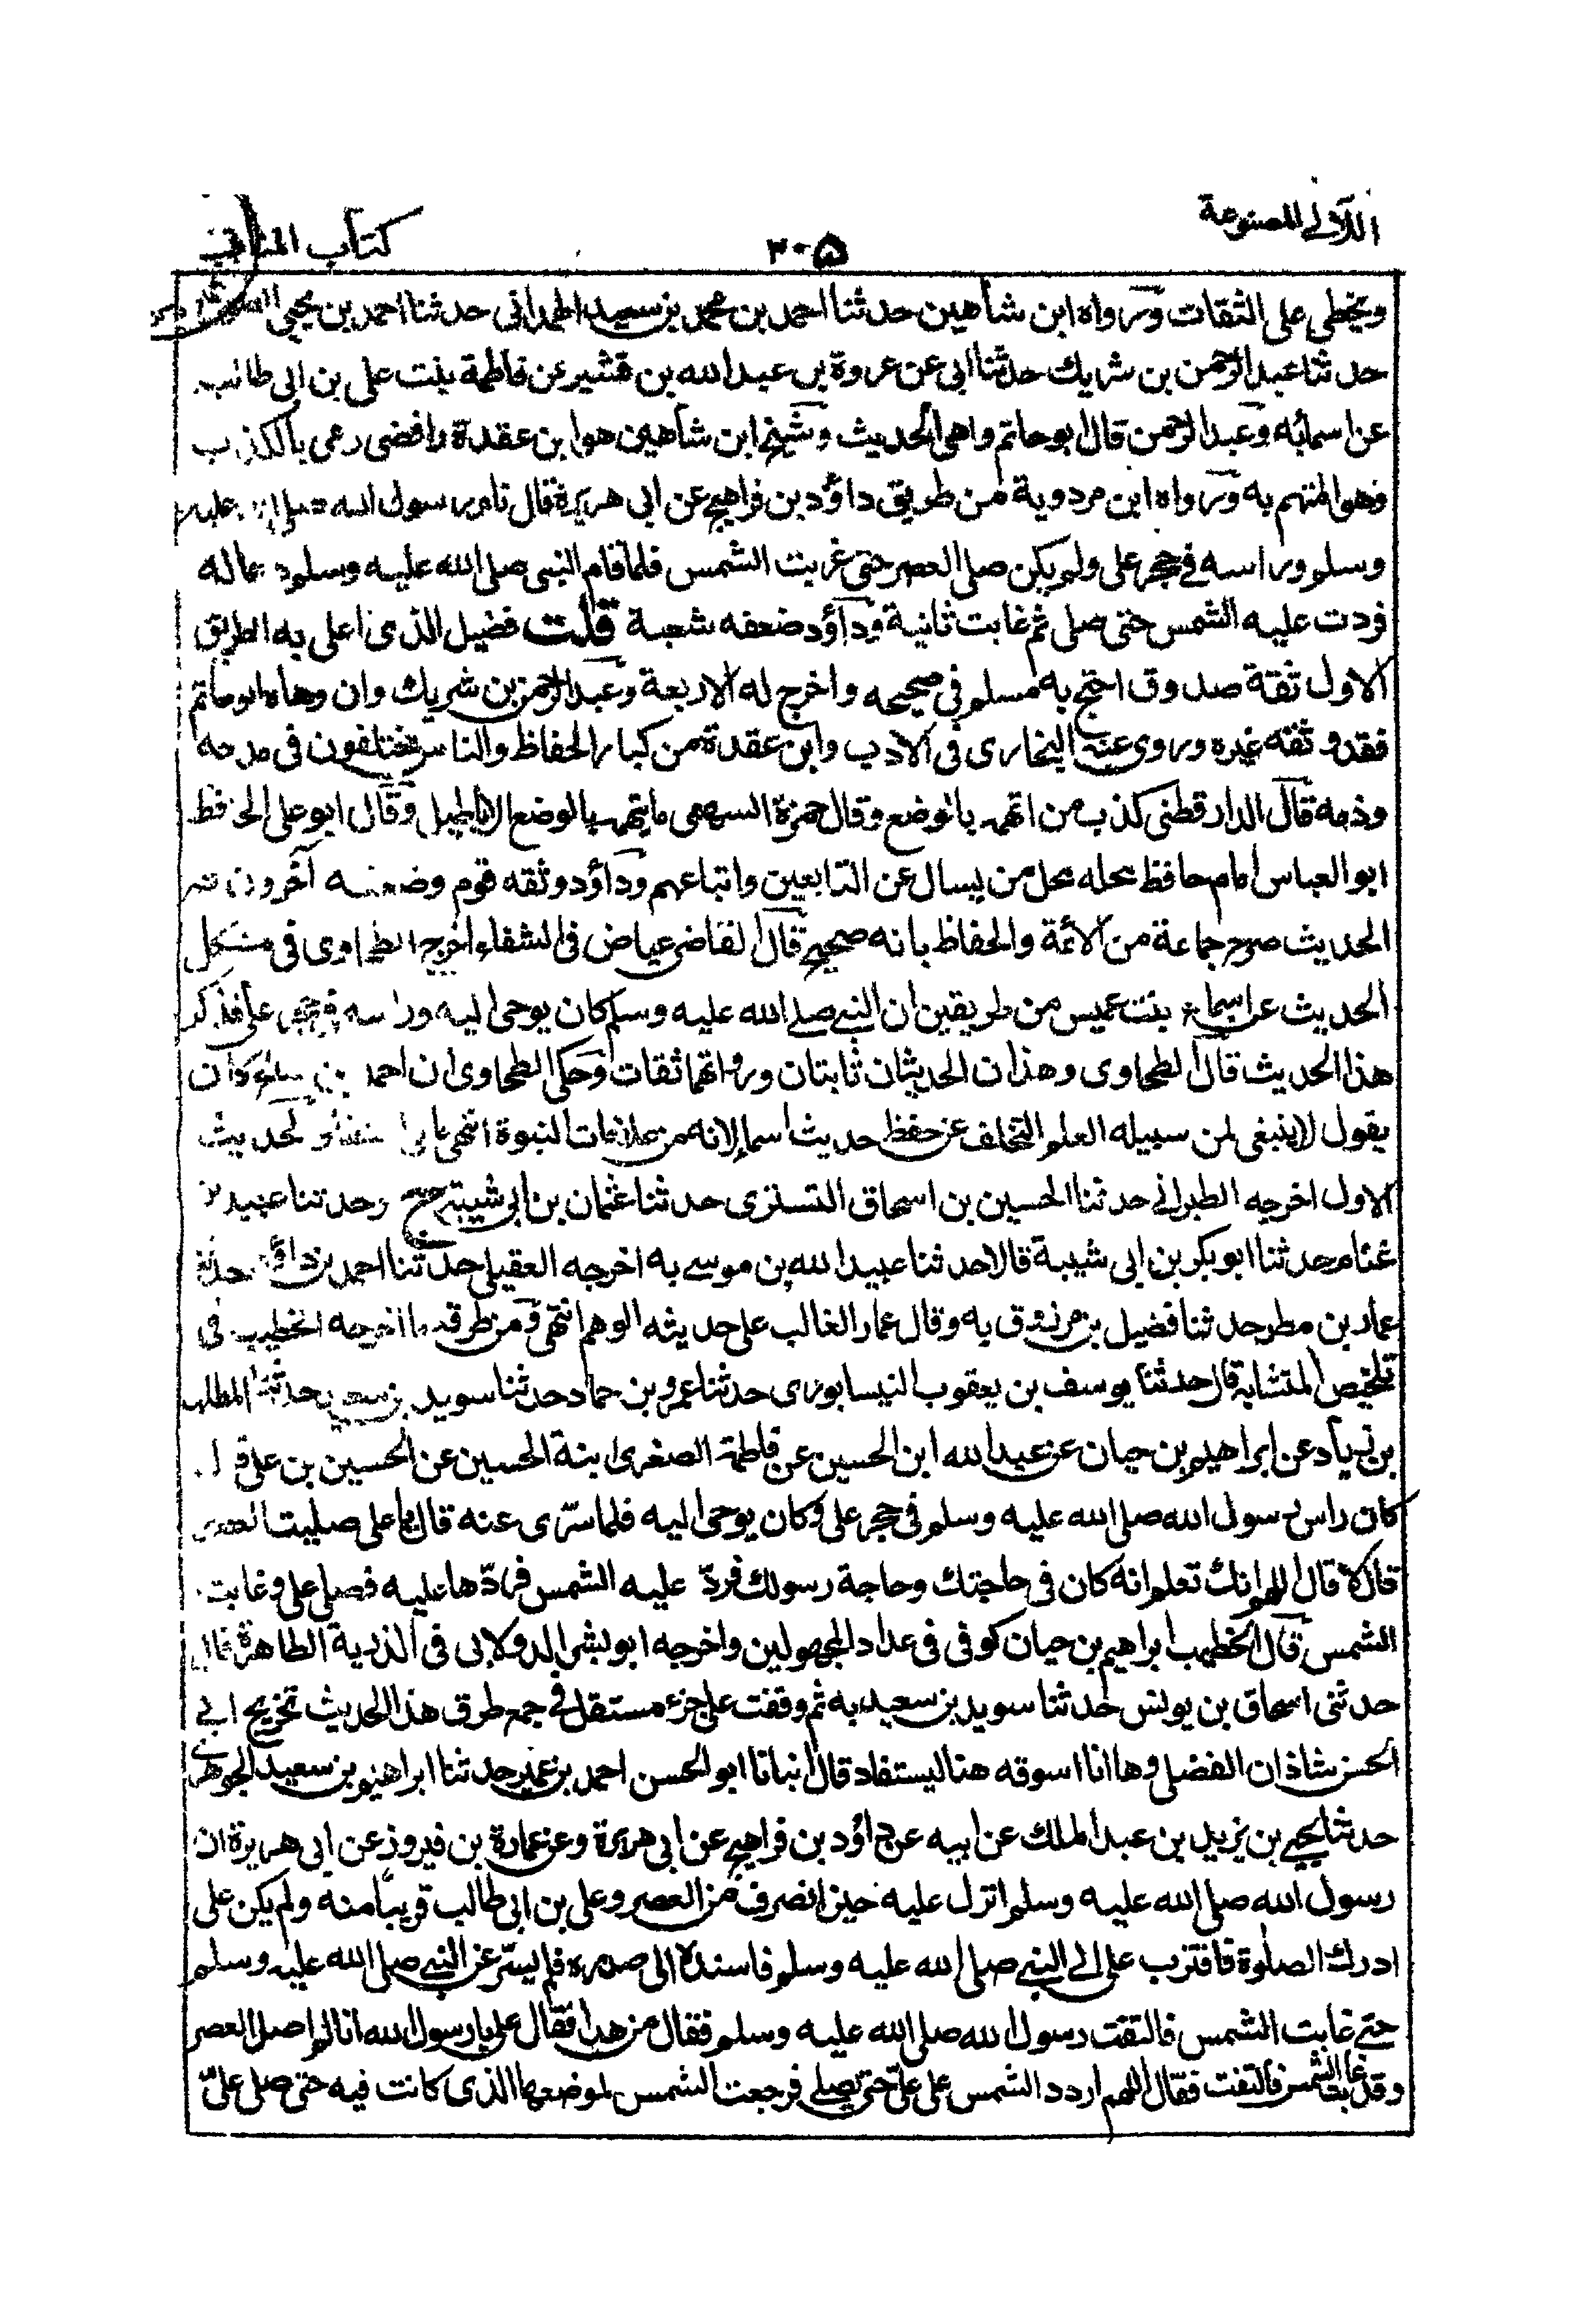 اللآلي المصنوعة
٣٠٥
كتاب المناقب
ويخطى على الثقات ورواه ابن شاهين حدثنا احمد بن محمد بن سعيد الهمدانى حدثنا احمد بن يحيى
حدثنا عبد الرحمن بن شريك حدثنا ابى عن عروة بن عبد الله بن قشير عن فاطمة بنت على بن ابى طالب
عن اسماء به وعبد الرحمن قال ابو حاتم واهى الحديث وشيخ ابن شاهين هو ابن عقدة رافضى رمى بالكذب
وهو المتهم به ورواه ابن مردوية من طريق داؤد بن فراهيج عن ابى هريرة قال نام رسول الله صلى الله عليه
وسلم وراسه فى حجر على ولم يكن صلى العصر حتى غربت الشمس فلما قام النبى صلى الله عليه وسلم دعا له
فردت عليه الشمس حتى صلى ثم غابت ثانية وداؤد ضعفه شعبة قلت فضيل الذى اعل به الطريق
الاول ثقة صدوق احتج به مسلم فى صحيحه واخرج له الاربعة وعبد الرحمن بن شريك وان وهاه ابو حاتم
فقد وثقه غيره وروى عنه البخارى فى الادب وابن عقدة من كبار الحفاظ والناس مختلفون فى مدحه
وذمه قال الدارقطنى كذب من اتهمه بالوضع وقال حمزة السهمى ما يتهمه بالوضع الا طبل وقال ابو على الحافظ
ابو العباس امام حافظ محله محل من يسال عن التابعين واتباعهم وداؤد وثقه قوم وضعفه آخرون ثم
الحديث صرح جماعة من الائمة والحفاظ بانه صحيح قال القاضى عياض فى الشفاء اخرج الطحاوى فى مشكل
الحديث عن اسماء بنت عميس من طريقين ان النبى صلى الله عليه وسلم كان يوحى اليه وراسه فى حجر على فذكر
هذا الحديث قال الطحاوى وهذان الحديثان ثابتان ورواتهما ثقات وحكى الطحاوى ان احمد بن صالح كان
يقول لا ينبغى لمن سبيله العلم التخلف عن حفظ حديث اسماء لانه من علامات النبوة انتهى الحديث
الاول اخرجه الطبرانى حدثنا الحسين بن اسحاق التسترى حدثنا عثمان بن ابى شيبة ح وحدثنا عبيد بن
غنام حدثنا ابو بكر بن ابى شيبة قالا حدثنا عبيد الله بن موسى به اخرجه العقيلى حدثنا احمد بن داؤد حدثنا
عمار بن مطر حدثنا فضيل بن مرزوق به وقال عمار الغالب على حديثه الوهم انتهى ومن طرقه ما اخرجه الخطيب فى
تلخيص المتشابه قال حدثنا يوسف بن يعقوب النيسابورى حدثنا عمرو بن حماد حدثنا سويد بن سعيد حدثنا المطلب
بن زياد عن ابراهيم بن حيان عن عبد الله ابن الحسين عن فاطمة الصغرى ابنة الحسين عن الحسين بن على قال
كان راس رسول الله صلى الله عليه وسلم فى حجر على وكان يوحى اليه فلما سرّى عنه قال يا على صليت العصر
قال لا قال اللهم انك تعلم انه كان فى حاجتك وحاجة رسولك فردّ عليه الشمس فردّها عليه فصلى على وغابت
الشمس قال الخطيب ابراهيم بن حيان كوفى فى عداد المجهولين واخرجه ابو بشر الدولابى فى الذرية الطاهرة قال
حدثنى اسحاق بن يونس حدثنا سويد بن سعيد به ثم وقفت على جزء مستقل فى جمع طرق هذا الحديث تخريج ابى
الحسن شاذان الفضلى وها انا اسوقه هنا ليستفاد قال انبانا ابو الحسن احمد بن عمير حدثنا ابراهيم بن سعيد الجوهرى
حدثنا يحيى بن يزيد بن عبد الملك عن ابيه عن داؤد بن فراهيج عن ابى هريرة وعن عمارة بن فيروز عن ابى هريرة ان
رسول الله صلى الله عليه وسلم انزل عليه حين انصرف من العصر وعلى بن ابى طالب قريبا منه ولم يكن على
ادرك الصلوة فاقترب على الى النبى صلى الله عليه وسلم فاسنده الى صدره فلم يسرّ عن النبى صلى الله عليه وسلم
حتى غابت الشمس فالتفت رسول الله صلى الله عليه وسلم فقال من هذا فقال على يا رسول الله انا لم اصل العصر
وقد غابت الشمس فالتفت فقال اللهم اردد الشمس على علىّ حتى يصلى فرجعت الشمس لموضعها الذى كانت فيه حتى صلى علىّ